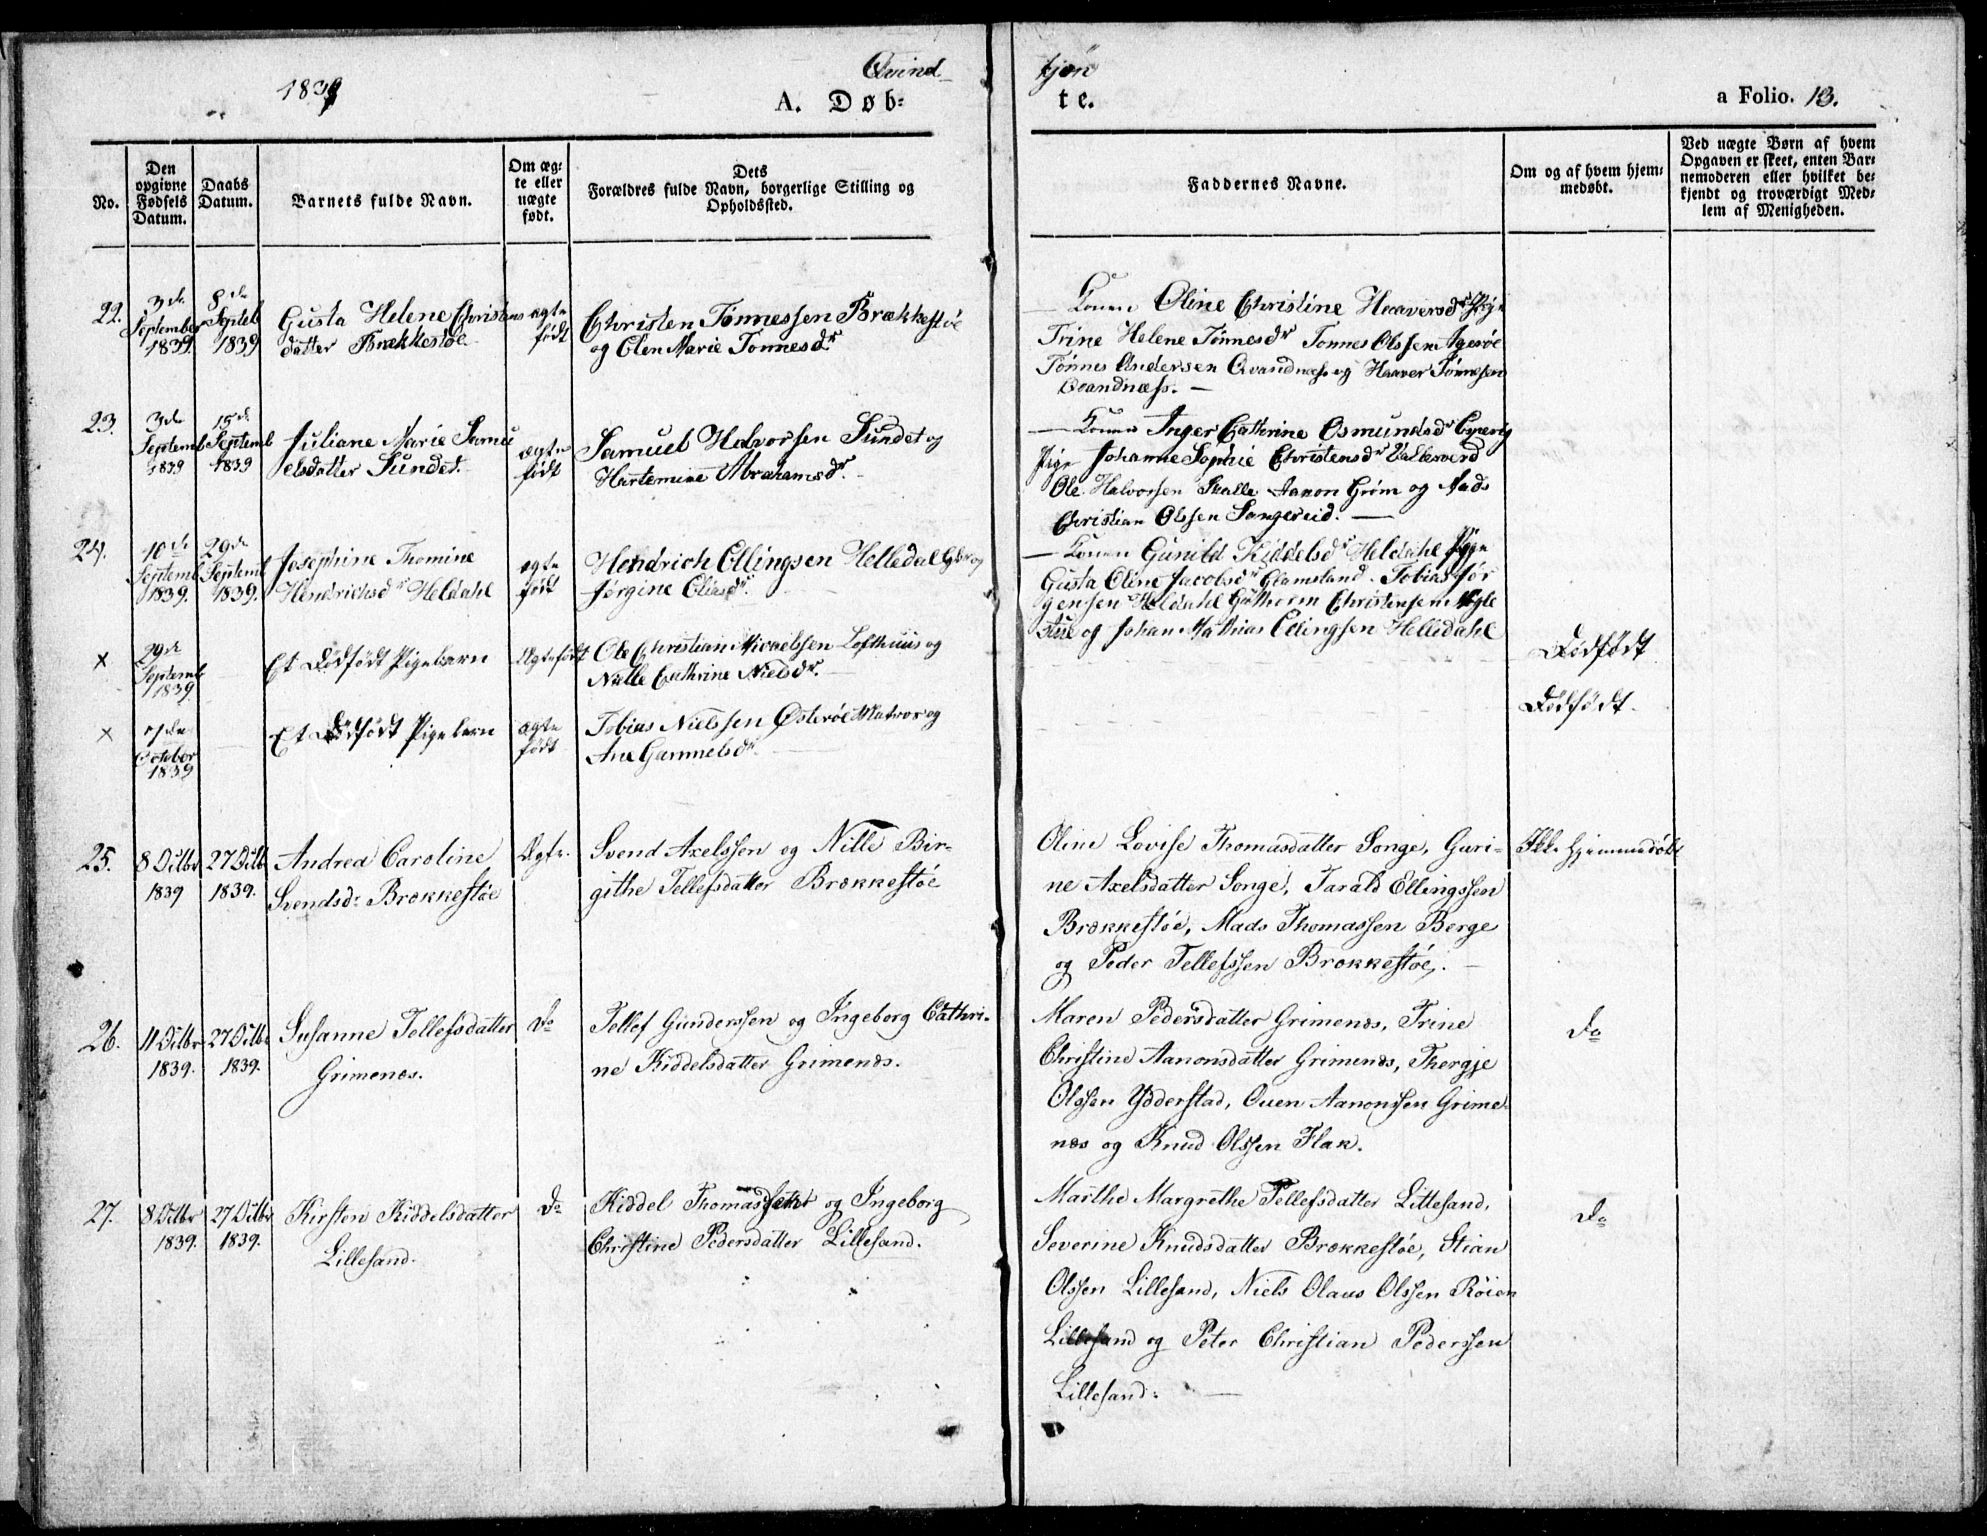 1839
Qvind-
kjøn
A. Døb-
te.
a Folio. 13.
No.
Den opgivne Fødsels Datum.
Daabs Datum.
Barnets fulde Navn.
Om ægte eller uægte født.
Dets
Forældres fulde Navn, borgerlige Stilling og
Opholdssted.
Faddernes Navne.
Om og af hvem hjem-
medøbt.
Ved uægte Børn af hvem
Opgaven er skeet, enten Bar-
nemoderen eller hvilket be-
kjendt og troværdigt Med-
lem af Menigheden.
22.
3de
September
1839
8de
Septeb
1839
Gusta Helene Christens
datter Brækkestøe
ægte
født
Christen Tønnessen Brækkestøe
og Elen Marie Tønnesdr.
Konen Oline Christine Haaversdr
Trine Helene Tønnesdr Tønnes Olssen Agerøe
Tønnes Andersen Qvandnæs og Haaver Tønnesen
Qvandnæss. —
23.
3de
Septemb
1839
15de
Septemb
1839
Juliane Marie Samu
elsdatter Sundet.
ægte
født
Samuel Halvorsen Sundet og
Hartemine Abrahamsdr.
— Konen Inger Cathrine Osmundsdr
Pige Johanne Sophie Christensdr Vallesverd
Ole Halvorsen Skalle Aanon Grøm og Mads
Christian Olssen Sangereid. —
24.
10de
Septemb
1839.
29de
Septemb
1839.
Josephine Thomine
Hendrichsdr Heldahl
ægte
født
Hendrich Ellingsen Helledal Gbr og
Jørgine Eliasdr.
— Konen Gunild Kiddelsdr Heldahl Pige
Gusta Oline Jacobsdr Glamsland. Tobias Jør
gensen Heldahl Guthorm Christensen
og Johan Mathias Ellingsen Helledahl
x
29de
Septemb
1839
Et Dødfødt Pigebarn
Ægtefødt
Ole Christian Micaelsen Lofthuus og
Nille Cathrine Nielsdr.
Dødfødt
x
October
1839
Et Dødfødt Pigebarn
ægte
født
Tobias Nielssen Østerøe Matros og
Ane Gammelsdr.
Dødfødt.
25.
8 Octbr
1839
27 Octb
1839.
Andrea Caroline
Svendsdr Brækkestøe
Ægte.
Svend Axelssen og Nille Bir-
githe Tellefsdatter Brækkestøe
Oline Lovise Thomasdatter Songe, Guri-
ne Axelsdatter Songe, Tarald Ellingssen
Brækkestøe, Mads Thomassen Berge
og Peder Tellefssen Brækkestøe. —
Ikke hjemmedøbt
26.
11 Octbr
1839.
27 Octbr
1839.
Susanne Tellefsdatter
Grimenæs.
Do
Tellef Gunderssen og Ingeborg Cathri-
ne Kiddelsdatter Grimenæs.
Maren Pedersdatter Grimenæs, Trine
Christine Aanonsdatter Grimenæs, Thergje
Olssen Ydderstad, Ouen Aanonssen Grime-
næs og Knud Olssen Flak.
Do
27.
8 Octbr
1839.
27 Octbr
1839.
Kirsten Kiddelsdatter
Lillesand.
Do
Kiddel Thomassen og Ingeborg
Christine Pedersdatter Lillesand.
Marthe Margrethe Tellefsdatter Lillesand,
Severine Knudsdatter Brækkestøe, Stian
Olssen Lillesand, Niels Olaus Olssen Røien
Lillesand og Peter Christian Pederssen
Lillesand. —
Do